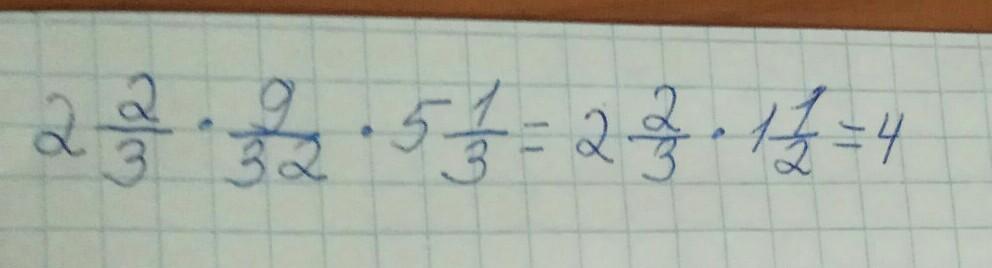 2 2/3 · 9/32 · 5 1/3 = 2 2/3 · 1 1/2 = 4